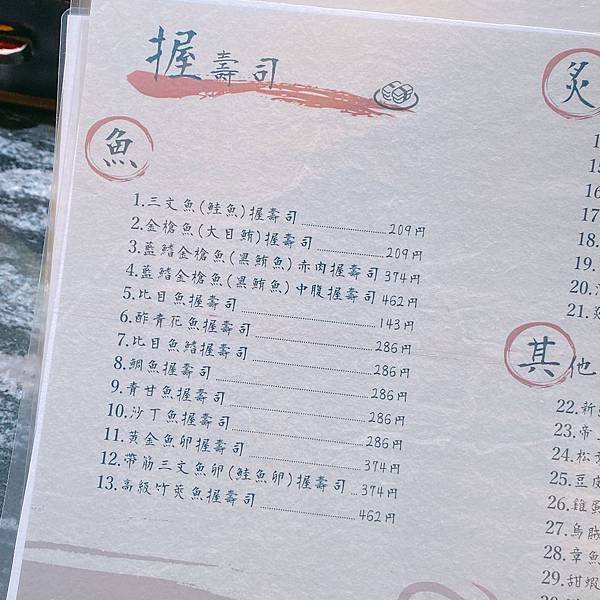 握壽司
魚
1.三文魚(鮭魚)握壽司 209円
2.金槍魚(大目鮪)握壽司 209円
3.藍鰭金槍魚(黑鮪魚)赤肉握壽司 374円
4.藍鰭金槍魚(黑鮪魚)中腹握壽司 462円
5.比目魚握壽司 143円
6.酢青花魚握壽司 286円
7.比目魚鰭握壽司 286円
8.鯛魚握壽司 286円
9.青甘魚握壽司 286円
10.沙丁魚握壽司 286円
11.黃金魚卵握壽司 374円
12.帶筋三文魚卵(鮭魚卵)握壽司 374円
13.高級竹莢魚握壽司 462円
炙
16
17
18.
19.
20.
21.
其他
22.新
23.帝
24.松
25.豆皮
26.雞蛋
27.烏賊
28.章魚
29.甜蝦